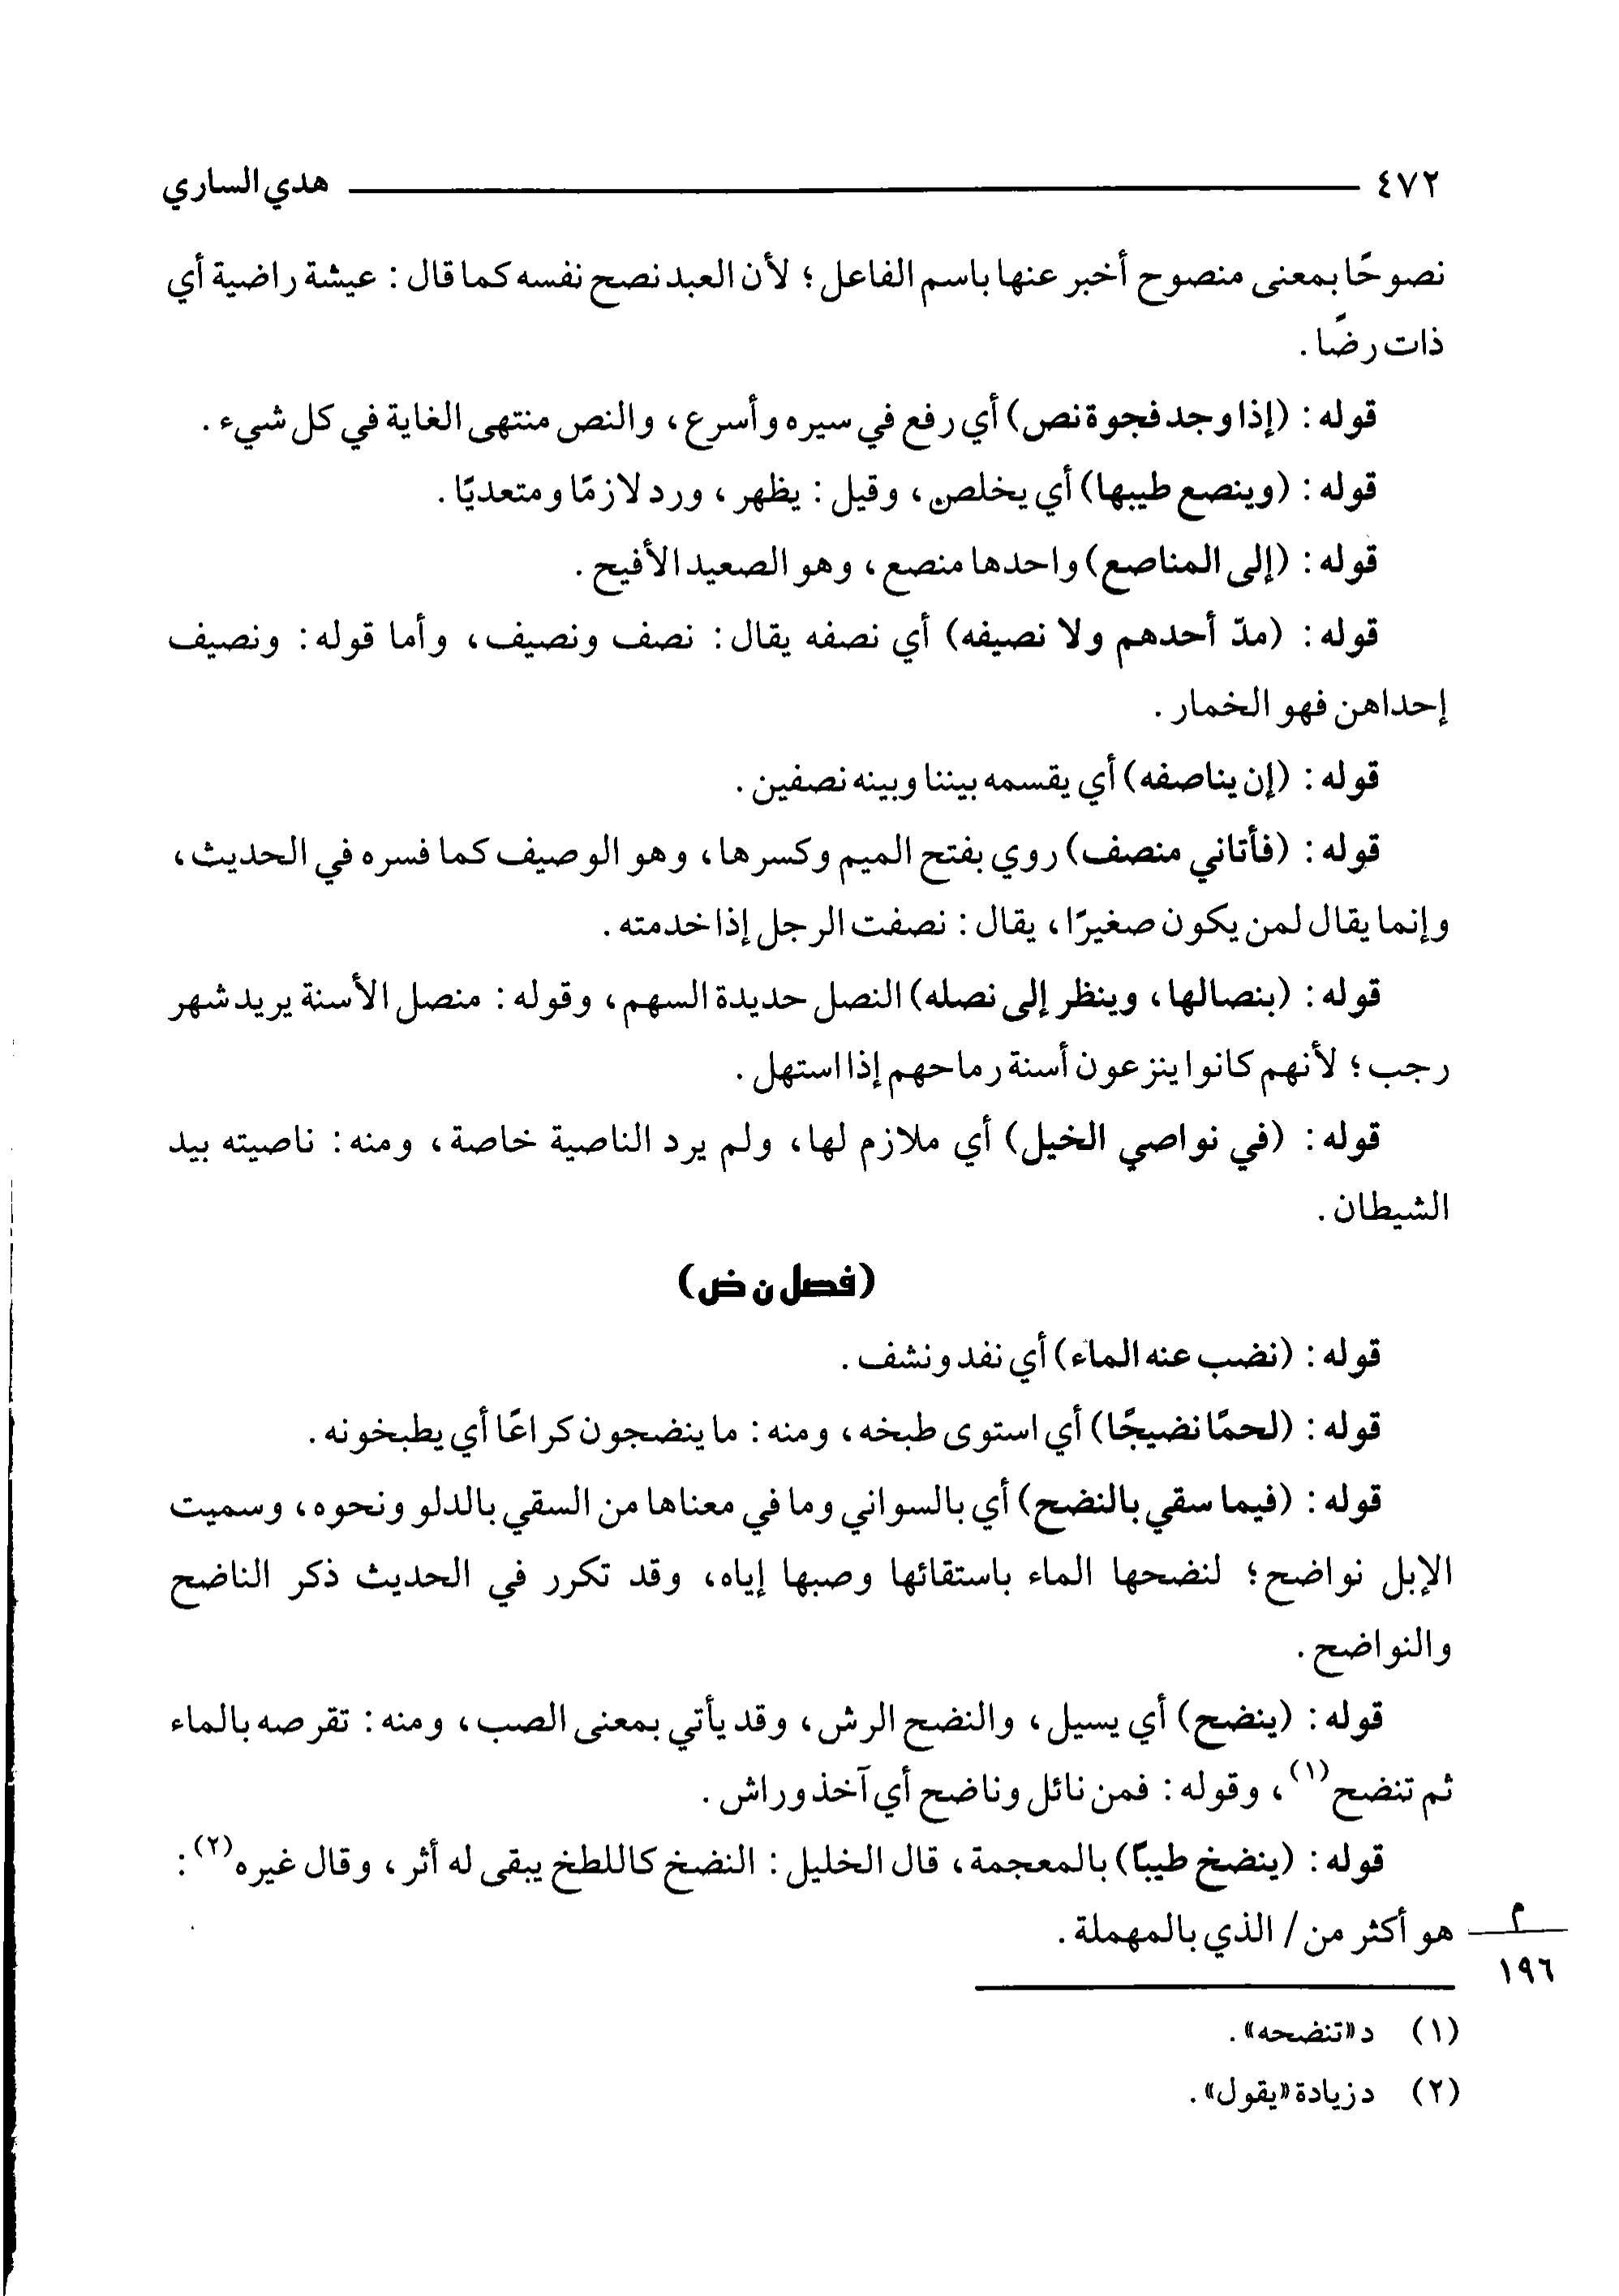 ٤٧٢ هدي الساري
نصوحًا بمعنى منصوح أخبر عنها باسم الفاعل؛ لأن العبد نصح نفسه كما قال: عيشة راضية أي
ذات رضًا.
قوله: (إذا وجد فجوة نص) أي رفع في سيره وأسرع، والنص منتهى الغاية في كل شيء.
قوله: (وينصع طيبها) أي يخلص، وقيل: يظهر، ورد لازمًا ومتعديًا.
قوله: (إلى المناصع) واحدها منصع، وهو الصعيد الأفيح.
قوله: (مدّ أحدهم ولا نصيفه) أي نصفه يقال: نصف ونصيف، وأما قوله: ونصيف
إحداهن فهو الخمار.
قوله: (إن يناصفه) أي يقسمه بيننا وبينه نصفين.
قوله: (فأتاني منصف) روي بفتح الميم وكسرها، وهو الوصيف كما فسره في الحديث،
وإنما يقال لمن يكون صغيرًا، يقال: نصفت الرجل إذا خدمته.
قوله: (بنصالها، وينظر إلى نصله) النصل حديدة السهم، وقوله: منصل الأسنة يريد شهر
رجب؛ لأنهم كانوا ينزعون أسنة رماحهم إذا استهل.
قوله: (في نواصي الخيل) أي ملازم لها، ولم يرد الناصية خاصة، ومنه: ناصيته بيد
الشيطان.
(فصل ن ض)
قوله: (نضب عنه الماء) أي نفد ونشف.
قوله: (لحمًا نضيجًا) أي استوى طبخه، ومنه: ما ينضجون كراعًا أي يطبخونه.
قوله: (فيما سقي بالنضح) أي بالسواني وما في معناها من السقي بالدلو ونحوه، وسميت
الإبل نواضح؛ لنضحها الماء باستقائها وصبها إياه، وقد تكرر في الحديث ذكر الناضح
والنواضح.
قوله: (ينضح) أي يسيل، والنضح الرش، وقد يأتي بمعنى الصب، ومنه: تقرصه بالماء
ثم تنضح(١)، وقوله: فمن نائل وناضح أي آخذ وراش.
قوله: (ينضخ طيبًا) بالمعجمة، قال الخليل: النضخ كاللطخ يبقى له أثر، وقال غيره(٢):
هو أكثر من / الذي بالمهملة.
م
١٩٦
(١) د «تنضحه».
(٢) د زيادة «يقول».